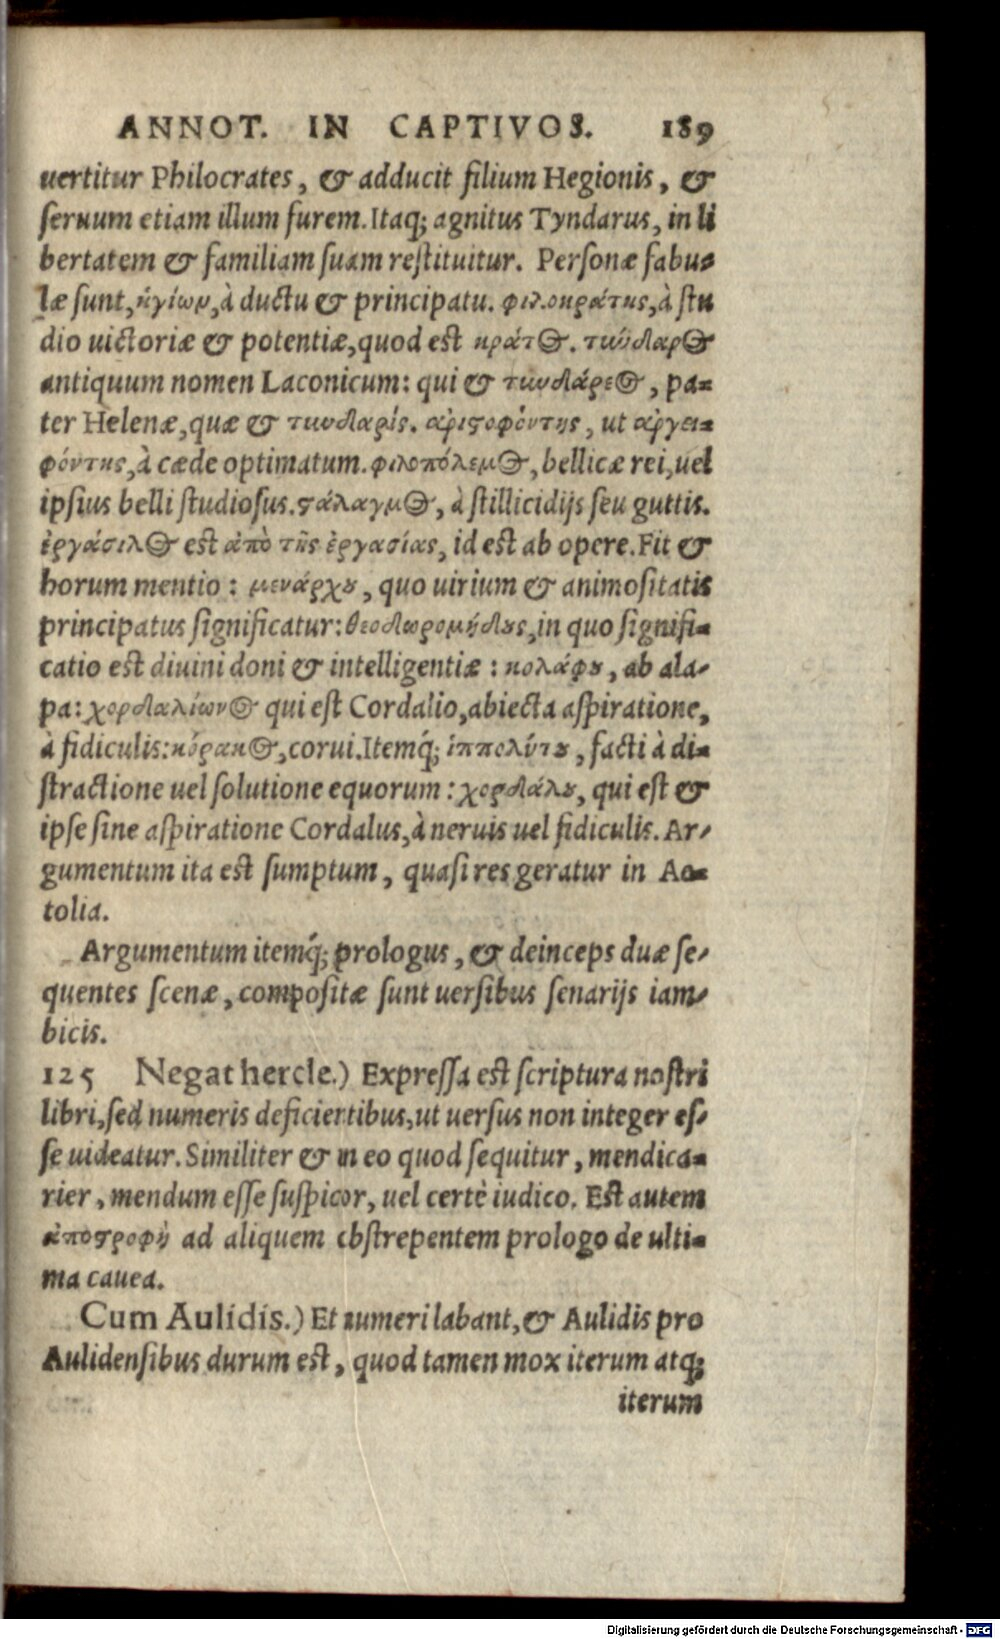 ANNOT. IN CAPTIVOS. 189
uertitur Philocrates, & adducit filium Hegionis, &
seruum etiam illum furem. Itaq; agnitus Tyndarus, in li
bertatem & familiam suam restituitur. Personæ fabu-
læ sunt, ἡγίων, à ductu & principatu. φιλοκράτης, à stu
dio uictoriæ & potentiæ, quod est κράτος. τύνδαρος
antiquum nomen Laconicum: qui & τυνδάρεος, pa-
ter Helenæ, quæ & τυνδαρίς. ἀριστοφόντης, ut ἀργει-
φόντης, à cæde optimatum. φιλοπόλεμος, bellicæ rei, uel
ipsius belli studiosus. στάλαγμος, à stillicidijs seu guttis.
ἐργάσιλος est ἀπὸ τῆς ἐργασίας, id est ab opere. Fit &
horum mentio: μενάρχου, quo uirium & animositatis
principatus significatur: θεοδωρομήδους, in quo signifi-
catio est diuini doni & intelligentiæ: κολάφου, ab ala-
pa: χορδαλίωνος qui est Cordalio, abiecta aspiratione,
à fidiculis: κόρακος, corui. Itemq́; ἱππολύτου, facti à di-
stractione uel solutione equorum: χορδάλου, qui est &
ipse sine aspiratione Cordalus, à neruis uel fidiculis. Ar-
gumentum ita est sumptum, quasi res geratur in Ao-
tolia.
Argumentum itemq́; prologus, & deinceps duæ se-
quentes scenæ, compositæ sunt uersibus senarijs iam-
bicis.
125 Negat hercle.) Expressa est scriptura nostri
libri, sed numeris deficientibus, ut uersus non integer es-
se uideatur. Similiter & in eo quod sequitur, mendica-
rier, mendum esse suspicor, uel certè iudico. Est autem
ἀποστροφὴ ad aliquem obstrepentem prologo de ulti-
ma cauea.
Cum Aulidis.) Et numeri labant, & Aulidis pro
Aulidensibus durum est, quod tamen mox iterum atq;
iterum
Digitalisierung gefördert durch die Deutsche Forschungsgemeinschaft - DFG